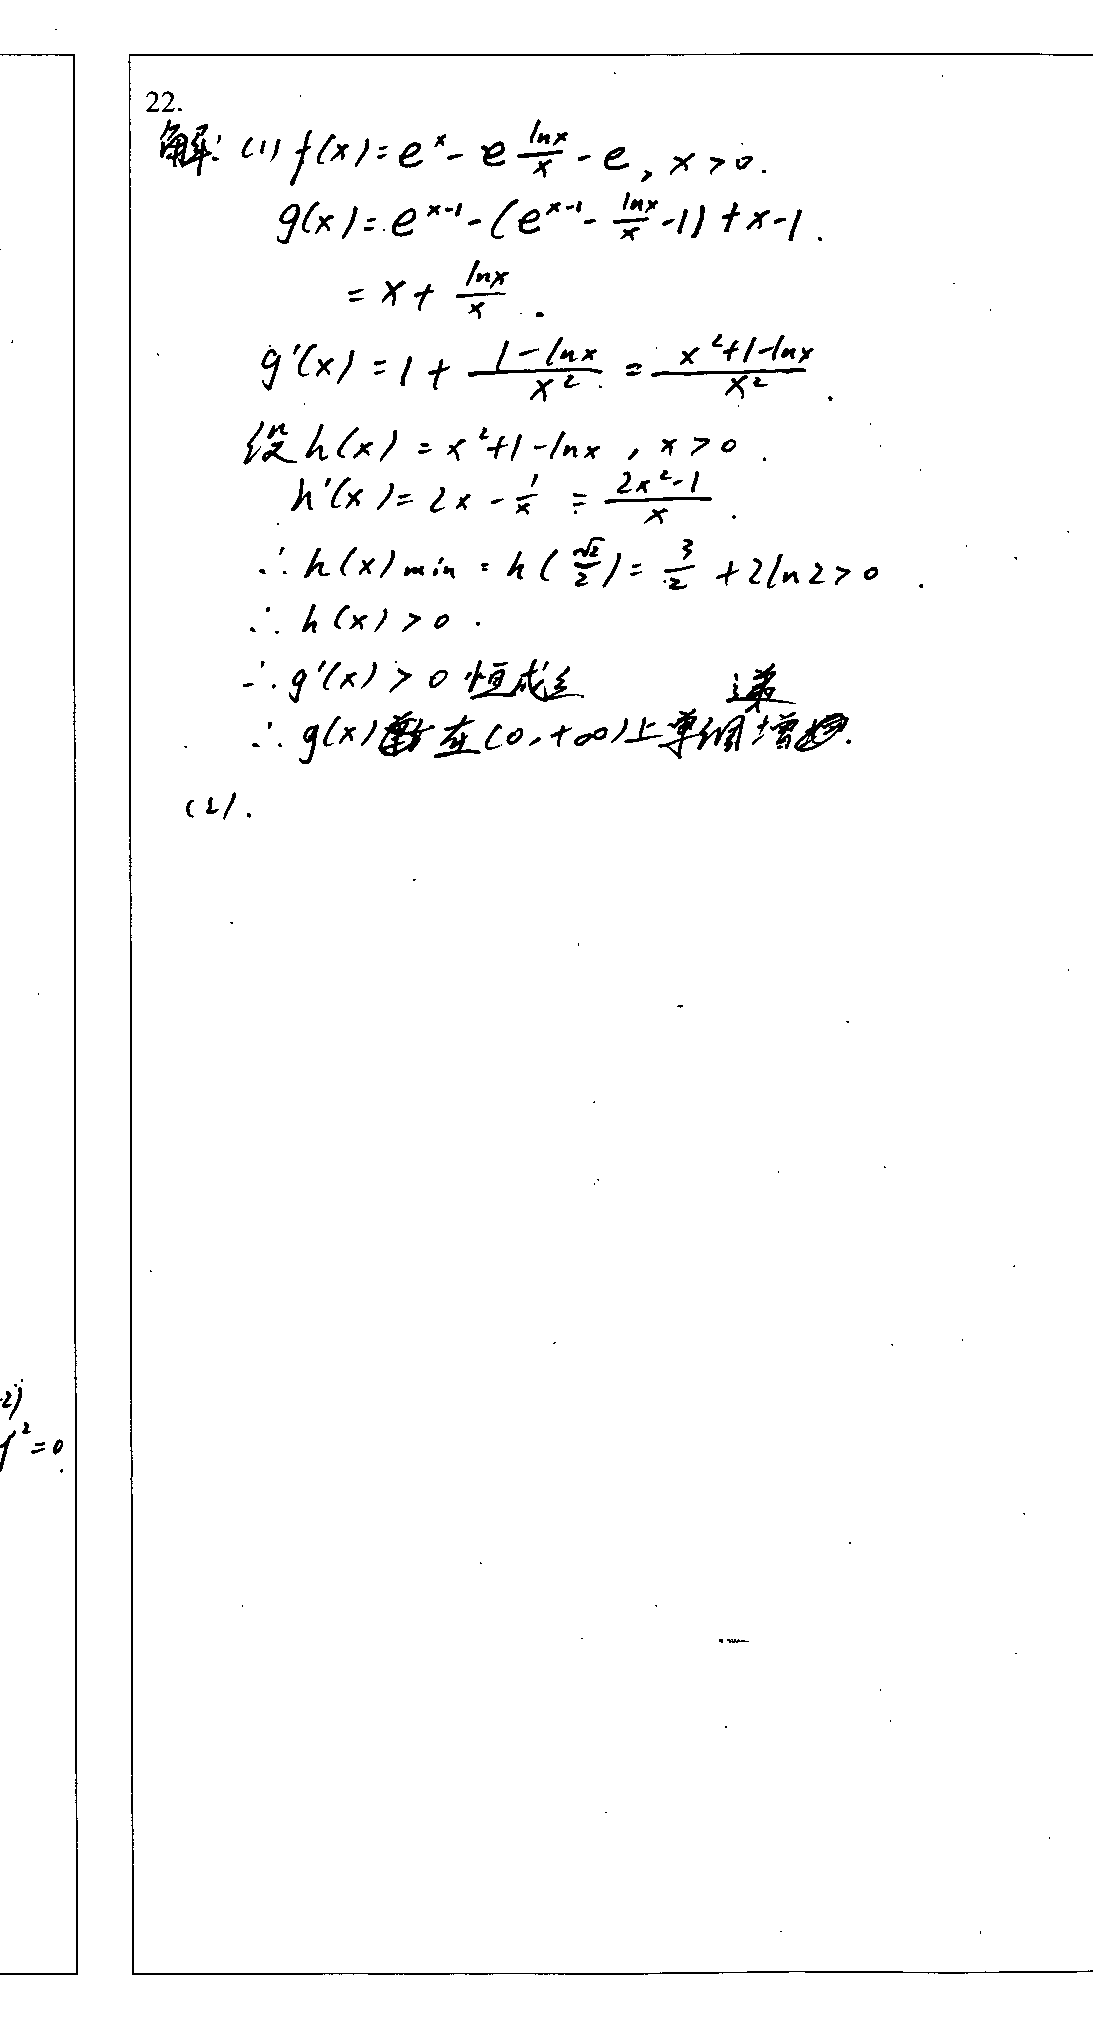 22.
解: (1) f(x) = e^x - e \frac{lnx}{x} - e, x > 0.
g(x) = e^{x-1} - (e^{x-1} - \frac{lnx}{x} - 1) + x - 1.
= x + \frac{lnx}{x}.
g'(x) = 1 + \frac{1-lnx}{x^2} = \frac{x^2+1-lnx}{x^2}.
设 h(x) = x^2+1-lnx, x > 0.
h'(x) = 2x - \frac{1}{x} = \frac{2x^2-1}{x}.
∴ h(x) min = h(\frac{\sqrt{2}}{2}) = \frac{3}{2} + 2ln2 > 0.
∴ h(x) > 0.
∴ g'(x) > 0 恒成立
∴ g(x) 在 (0, +∞) 上单调递增.
(2).
2)
y^2 = 0